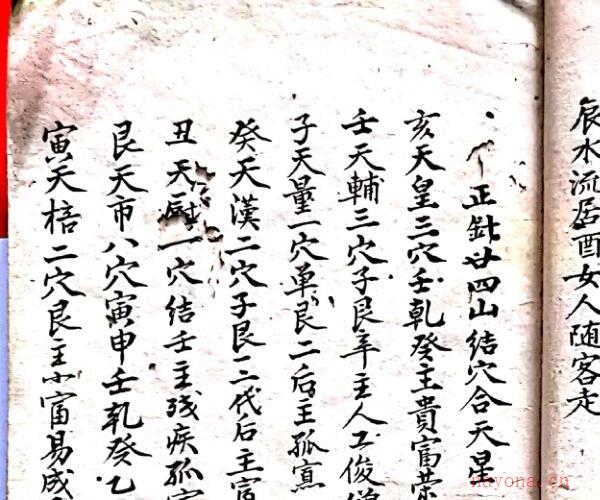 辰水流居酉女人随客走
正針廿四山结穴合天星
亥天皇三穴壬乹癸主貴富荣
壬天輔三穴子艮 主人工俊
子天量一穴单艮二后主孤寡
癸天漢二穴子艮三代后主富
丑天厨一穴结壬主残疾孤寡
艮天市八穴寅申壬乹癸乙
寅天棓二穴艮主小富易成
nayona.cn